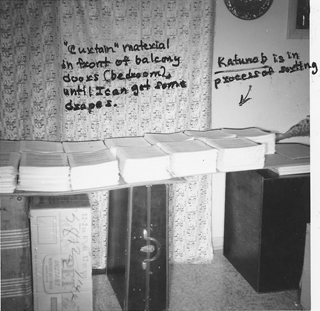 "Curtain" material
in front of balcony
doors (bedroom),
until I can get some
drapes.
Katunob is in
process of sorting